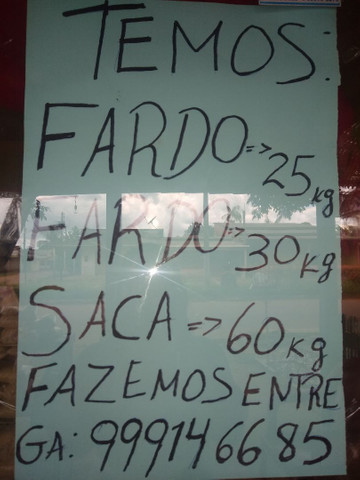 TEMOS:
FARDO => 25 kg
FARDO => 30 kg
SACA => 60 kg
FAZEMOS ENTRE
GA: 999146685